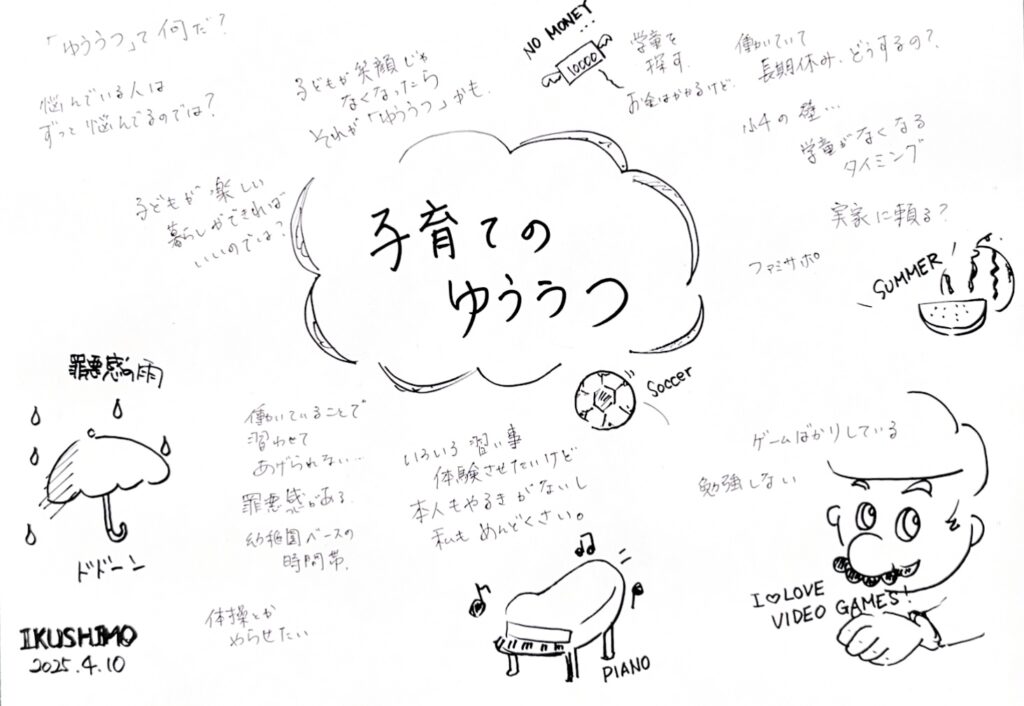 「ゆううつ」って何だ?
悩んでいる人は
ずっと悩んでるのでは?
子どもが笑顔じゃ
なくなったら
それが「ゆううつ」かも.
NO MONEY
10000
学童を
探す.
お金はかかるけど.
働いていて
長期休み、どうするの?
小4の壁…
学童がなくなる
タイミング
子どもが楽しい
暮らしができれば
いいのでは?
子育ての
ゆううつ
実家に頼る?
ファミサポ
SUMMER!
罪悪感の雨
ドドーン
Soccer
働いていることで
習わせて
あげられない…
罪悪感がある.
幼稚園ベースの
時間帯.
体操とか
やらせたい
いろいろ習い事
体験させたいけど
本人もやるきがないし
私もめんどくさい。
PIANO
ゲームばかりしている
勉強しない
I♡LOVE
VIDEO GAMES!
IKUSHIMO
2025.4.10